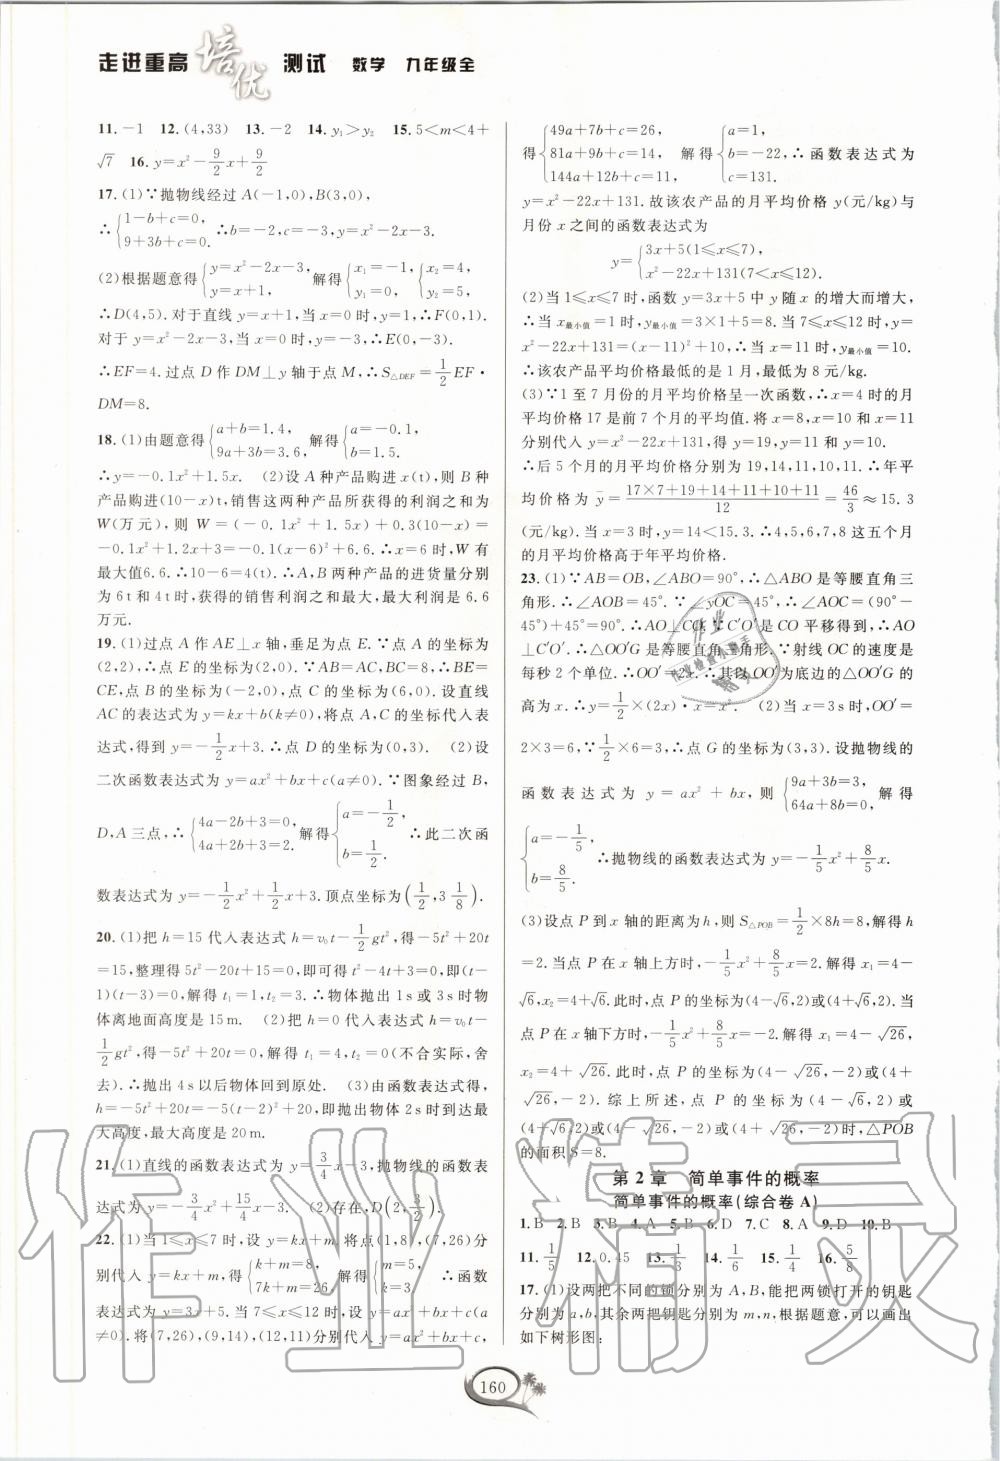 走进重高 培优 测试 数学 九年级全
11. －1 12. (4,33) 13. －2 14. y₁＞y₂ 15. 5＜m＜4＋
√7 16. y＝x²－9/2x＋9/2
17. (1)∵抛物线经过 A(－1,0),B(3,0),
∴{1－b＋c＝0, 9＋3b＋c＝0. ∴b＝－2,c＝－3,y＝x²－2x－3.
(2)根据题意得{y＝x²－2x－3, y＝x＋1, 解得{x₁＝－1, y₁＝0, {x₂＝4, y₂＝5,
∴D(4,5). 对于直线 y＝x＋1,当 x＝0 时,y＝1,∴F(0,1).
对于 y＝x²－2x－3,当 x＝0 时,y＝－3,∴E(0,－3).
∴EF＝4. 过点 D 作 DM⊥y 轴于点 M,∴S△DEF＝1/2EF·
DM＝8.
18. (1)由题意得{a＋b＝1.4, 9a＋3b＝3.6, 解得{a＝－0.1, b＝1.5.
∴y＝－0.1x²＋1.5x. (2)设 A 种产品购进 x(t),则 B 种
产品购进(10－x)t,销售这两种产品所获得的利润之和为
W(万元),则 W＝(－0.1x²＋1.5x)＋0.3(10－x)＝
－0.1x²＋1.2x＋3＝－0.1(x－6)²＋6.6.∴x＝6 时,W 有
最大值6.6.∴10－6＝4(t).∴A,B 两种产品的进货量分别
为 6t 和 4t 时,获得的销售利润之和最大,最大利润是 6.6
万元.
19. (1)过点 A 作 AE⊥x 轴,垂足为点 E.∵点 A 的坐标为
(2,2),∴点 E 的坐标为(2,0).∵AB＝AC,BC＝8,∴BE＝
CE,点 B 的坐标为(－2,0),点 C 的坐标为(6,0). 设直线
AC 的表达式为 y＝kx＋b(k≠0),将点 A,C 的坐标代入表
达式,得到 y＝－1/2x＋3.∴点 D 的坐标为(0,3). (2)设
二次函数表达式为 y＝ax²＋bx＋c(a≠0).∵图象经过 B,
D,A 三点,∴{4a－2b＋3＝0, 4a＋2b＋3＝2. 解得{a＝－1/2, b＝1/2. ∴此二次函
数表达式为 y＝－1/2x²＋1/2x＋3. 顶点坐标为(1/2,3 1/8).
20. (1)把 h＝15 代入表达式 h＝v₀t－1/2gt²,得－5t²＋20t
＝15,整理得 5t²－20t＋15＝0,即可得 t²－4t＋3＝0,即(t－
1)(t－3)＝0,解得 t₁＝1,t₂＝3.∴物体抛出 1s 或 3s 时物
体离地面高度是 15m. (2)把 h＝0 代入表达式 h＝v₀t－
1/2gt²,得－5t²＋20t＝0,解得 t₁＝4,t₂＝0(不合实际,舍
去).∴抛出 4s 以后物体回到原处. (3)由函数表达式得,
h＝－5t²＋20t＝－5(t－2)²＋20,即抛出物体 2s 时到达最
大高度,最大高度是 20m.
21. (1)直线的函数表达式为 y＝3/4x－3,抛物线的函数表
达式为 y＝－3/4x²＋15/4x－3. (2)存在,D(2,3/2).
22. (1)当 1≤x≤7 时,设 y＝kx＋m,将点(1,8),(7,26)分
别代入 y＝kx＋m,得{k＋m＝8, 7k＋m＝26, 解得{m＝5, k＝3. ∴函数
表达式为 y＝3x＋5. 当 7≤x≤12 时,设 y＝ax²＋bx＋c(a
≠0). 将(7,26),(9,14),(12,11)分别代入 y＝ax²＋bx＋c,
得{49a＋7b＋c＝26, 81a＋9b＋c＝14, 144a＋12b＋c＝11, 解得{a＝1, b＝－22, c＝131. ∴函数表达式为
y＝x²－22x＋131. 故该农产品的月平均价格 y(元/kg)与
月份 x 之间的函数表达式为
y＝{3x＋5(1≤x≤7), x²－22x＋131(7＜x≤12).
(2)当 1≤x≤7 时,函数 y＝3x＋5 中 y 随 x 的增大而增大,
∴当 x最小值＝1 时,y最小值＝3×1＋5＝8. 当 7≤x≤12 时,y
＝x²－22x＋131＝(x－11)²＋10,∴当 x＝11 时,y最小值＝10.
∴该农产品平均价格最低的是 1 月,最低为 8 元/kg.
(3)∵1 至 7 月份的月平均价格呈一次函数,∴x＝4 时的月
平均价格 17 是前 7 个月的平均值. 将 x＝8,x＝10 和 x＝11
分别代入 y＝x²－22x＋131,得 y＝19,y＝11 和 y＝10.
∴后 5 个月的月平均价格分别为 19,14,11,10,11.∴年平
均价格为 y̅＝(17×7＋19＋14＋11＋10＋11)/12＝46/3≈15.3
(元/kg). 当 x＝3 时,y＝14＜15.3.∴4,5,6,7,8 这五个月
的月平均价格高于年平均价格.
23. (1)∵AB＝OB,∠ABO＝90°,∴△ABO 是等腰直角三
角形.∴∠AOB＝45°.∵∠yOC＝45°,∴∠AOC＝(90°－
45°)＋45°＝90°.∴AO⊥CO.∵C′O′是 CO 平移得到,∴AO
⊥C′O′.∴△OO′G 是等腰直角三角形.∵射线 OC 的速度是
每秒 2 个单位,∴OO′＝2x.∴以 OO′为底边的△OO′G 的
高为 x.∴y＝1/2×(2x)·x＝x². (2)当 x＝3s 时,OO′＝
2×3＝6,∵1/2×6＝3,∴点 G 的坐标为(3,3). 设抛物线的
函数表达式为 y＝ax²＋bx,则{9a＋3b＝3, 64a＋8b＝0. 解得
{a＝－1/5, b＝8/5. ∴抛物线的函数表达式为 y＝－1/5x²＋8/5x.
(3)设点 P 到 x 轴的距离为 h,则 S△POB＝1/2×8h＝8,解得 h
＝2. 当点 P 在 x 轴上方时,－1/5x²＋8/5x＝2. 解得 x₁＝4－
√6,x₂＝4＋√6. 此时,点 P 的坐标为(4－√6,2)或(4＋√6,2). 当
点 P 在 x 轴下方时,－1/5x²＋8/5x＝－2. 解得 x₁＝4－√26,
x₂＝4＋√26. 此时,点 P 的坐标为(4－√26,－2)或(4＋
√26,－2). 综上所述,点 P 的坐标为(4－√6,2)或
(4＋√6,2)或(4－√26,－2)或(4＋√26,－2)时,△POB
的面积 S＝8.
第 2 章 简单事件的概率
简单事件的概率(综合卷 A)
1. B 2. B 3. B 4. A 5. B 6. D 7. C 8. A 9. D 10. B
11. 1/5 12. 0.45 13. 1/3 14. 1/6 15. 1/4 16. 5/8
17. (1)设两把不同的锁分别为 A,B,能把两锁打开的钥匙
分别为 a,b,其余两把钥匙分别为 m,n,根据题意,可以画出
如下树形图:
160
作业精灵